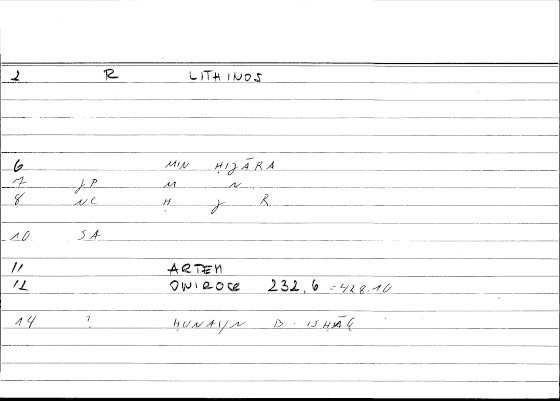 2 R LITHINOS
6 MIN ḤIJĀRA
7 JP M N
8 NC Ḥ J R
10 SA
11 ARTEM
12 ONIROCR 232.6 =428.10
14 ? ḤUNAYN B. ISḤĀQ